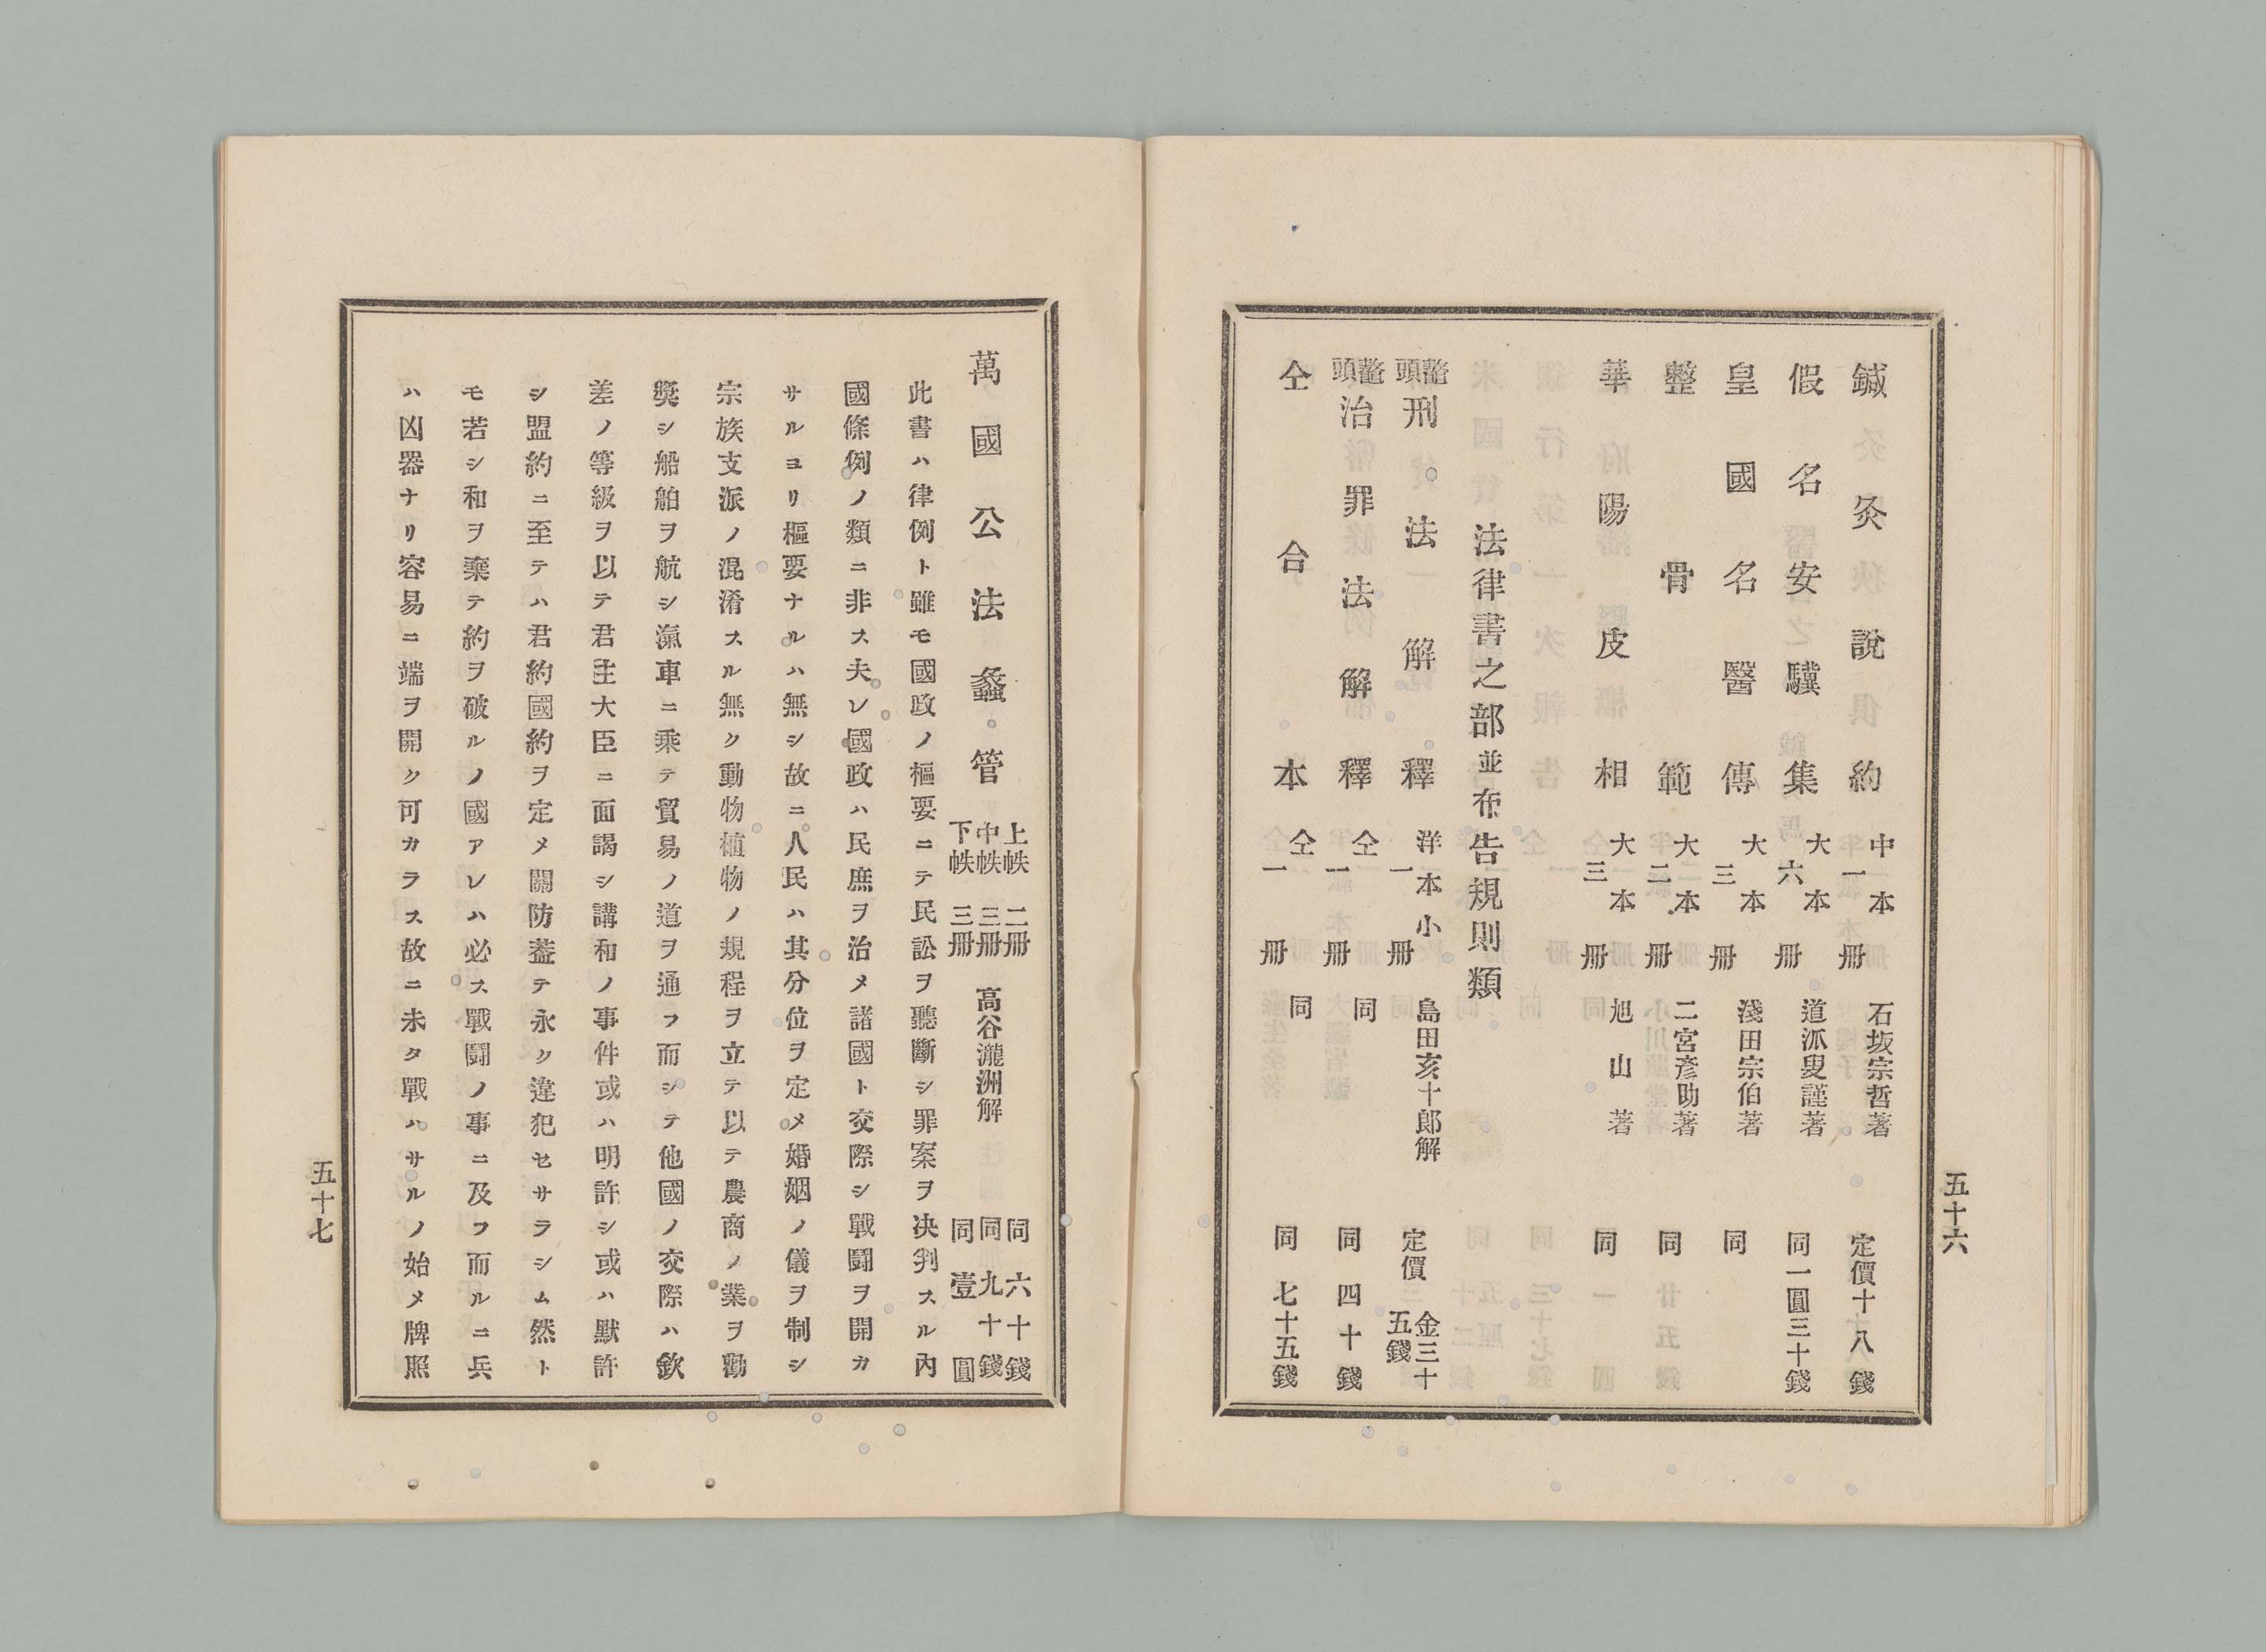 鍼灸說俱約 中本一冊 石坂宗哲著 定價十八錢
假名安驥集 大本六冊 道派叟謹著 同一圓三十錢
皇國名醫傳 大本三冊 淺田宗伯著 同
整骨範 大本二冊 二宮彥助著 同
華陽皮相 大本三冊 旭山著 同
法律書之部並布告規則類
鼇頭刑法解釋 洋本小一冊 島田亥十郎解 定價金三十五錢
鼇頭治罪法解釋 仝一冊 同 同四十錢
仝合本 仝一冊 同 同七十五錢
五十六
萬國公法蠡管 上帙二冊 中帙三冊 下帙三冊 高谷瀧洲解 同六十錢 同九十錢 同壹圓
此書ハ律例ト雖モ國政ノ樞要ニテ民訟ヲ聽斷シ罪案ヲ決判スル內
國條例ノ類ニ非ス夫レ國政ハ民庶ヲ治メ諸國ト交際シ戰鬪ヲ開カ
サルヨリ樞要ナルハ無シ故ニ人民ハ其分位ヲ定メ婚姻ノ儀ヲ制シ
宗族支派ノ混淆スル無ク動物植物ノ規程ヲ立テ以テ農商ノ業ヲ勸
奬シ船舶ヲ航シ瀛車ニ乘テ貿易ノ道ヲ通フ而シテ他國ノ交際ハ欽
差ノ等級ヲ以テ君主大臣ニ面謁シ講和ノ事件或ハ明許シ或ハ默許
シ盟約ニ至テハ君約國約ヲ定メ關防葢テ永ク違犯セサラシム然ト
モ若シ和ヲ棄テ約ヲ破ルノ國アレハ必ス戰鬪ノ事ニ及フ而ルニ兵
ハ凶器ナリ容易ニ端ヲ開ク可カラス故ニ未タ戰ハサルノ始メ牌照
五十七